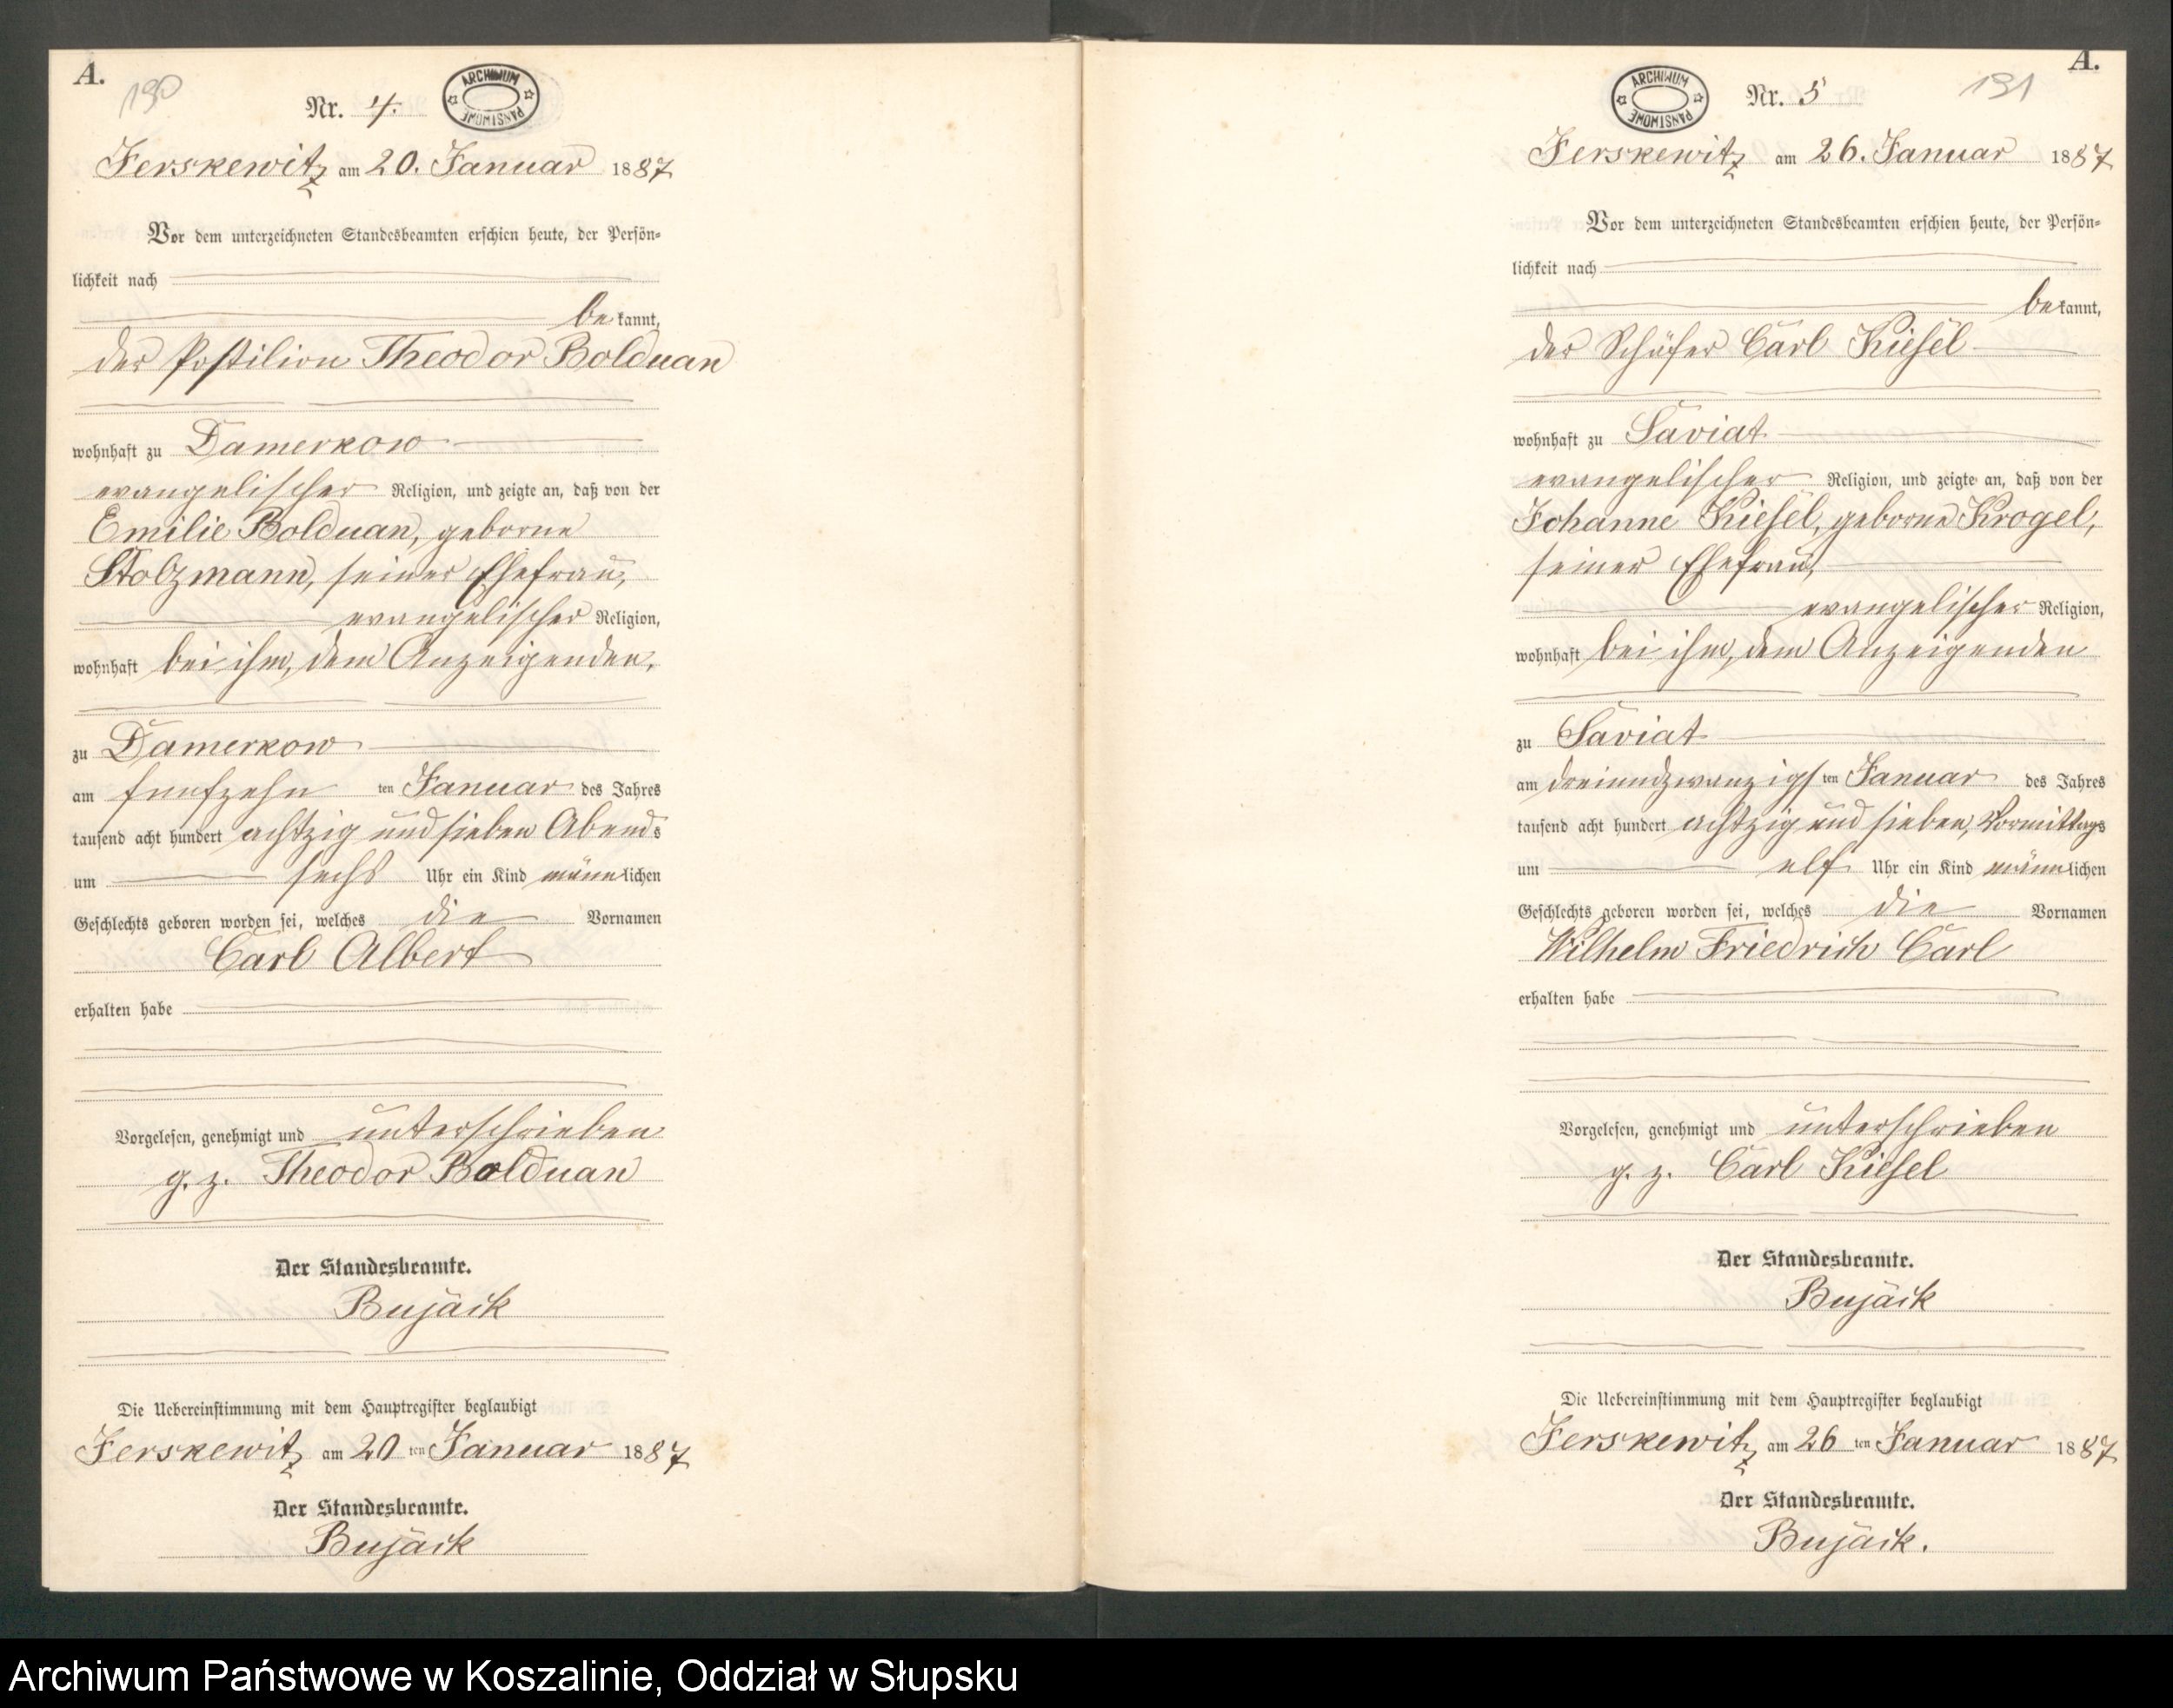 A.
190
Nr. 4.
ARCHIWUM PAŃSTWOWE
Jerskewitz am 20. Januar 1887
Vor dem unterzeichneten Standesbeamten erschien heute, der Persön-
lichkeit nach
bekannt,
der Postilion Theodor Bolduan
wohnhaft zu Damerkow
evangelischer Religion, und zeigte an, daß von der
Emilie Bolduan, geborne
Stolzmann, seiner Ehefrau,
evangelischer Religion,
wohnhaft bei ihm, dem Anzeigenden,
zu Damerkow
am funfzehn ten Januar des Jahres
tausend acht hundert achtzig und sieben Abends
um sechs Uhr ein Kind männlichen
Geschlechts geboren worden sei, welches die Vornamen
Carl Albert
erhalten habe
Vorgelesen, genehmigt und unterschrieben
g. z. Theodor Bolduan
Der Standesbeamte.
Bujack
Die Uebereinstimmung mit dem Hauptregister beglaubigt
Jerskewitz am 20 ten Januar 1887
Der Standesbeamte.
Bujack
A.
191
ARCHIWUM PAŃSTWOWE
Nr. 5
Jerskewitz am 26. Januar 1887
Vor dem unterzeichneten Standesbeamten erschien heute, der Persön-
lichkeit nach
bekannt,
der Schäfer Carl Kiesel
wohnhaft zu Saviat
evangelischer Religion, und zeigte an, daß von der
Johanne Kiesel, geborne Krogel,
seiner Ehefrau,
evangelischer Religion,
wohnhaft bei ihm, dem Anzeigenden
zu Saviat
am dreiundzwanzigsten Januar des Jahres
tausend acht hundert achtzig und sieben, Vormittags
um elf Uhr ein Kind männlichen
Geschlechts geboren worden sei, welches die Vornamen
Wilhelm Friedrich Carl
erhalten habe
Vorgelesen, genehmigt und unterschrieben
g. z. Carl Kiesel
Der Standesbeamte.
Bujack
Die Uebereinstimmung mit dem Hauptregister beglaubigt
Jerskewitz am 26 ten Januar 1887
Der Standesbeamte.
Bujack.
Archiwum Państwowe w Koszalinie, Oddział w Słupsku